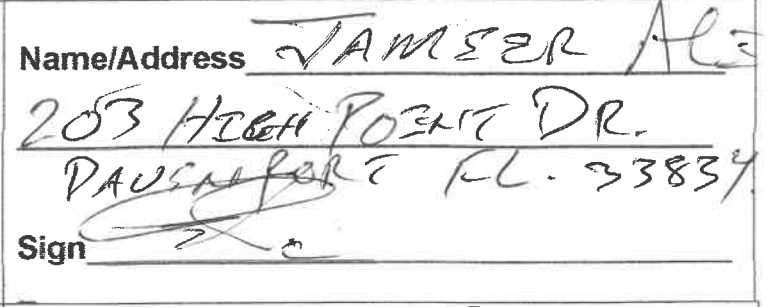 Name/Address JAMEER Ali
203 HIGH POINT DR.
DAVENPORT FL. 33834
Sign